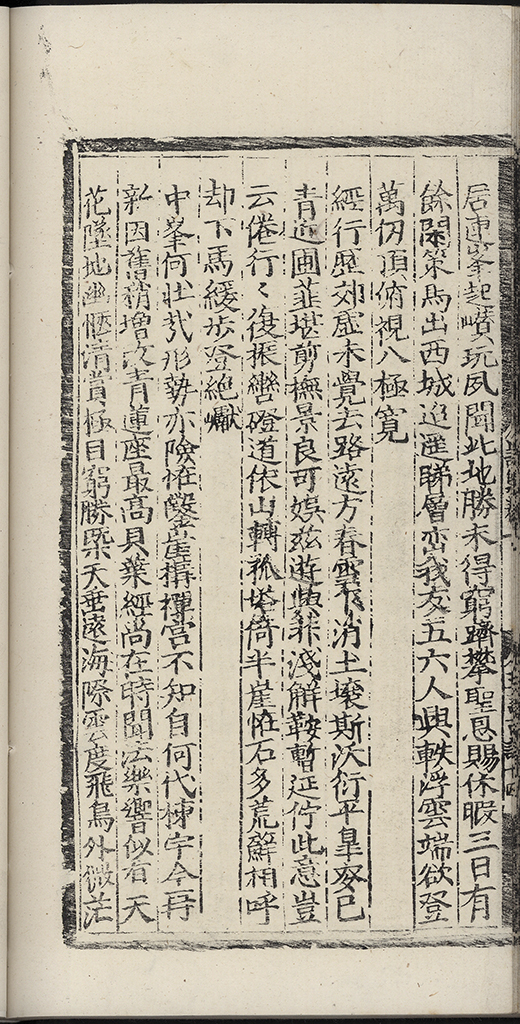 居連峯起巑玩夙聞此地勝未得窮躋攀聖恩賜休暇三日有
餘閑策馬出西城迢遥睇層巒我友五六人興軼浮雲端欲登
萬仞頂俯視八極寬
經行歷郊虛未覺去路遠方春雪下消土壤斯沃衍平皐麥已
青迎圃韮堪剪撫景良可娛玆遊興非淺解鞍暫延佇此意豈
云倦行〻復振轡磴道依山轉孤塔倚半崖怪石多荒蘚相呼
却下馬緩步登絶巘
中峯何壯哉形勢亦險怪鑿崖搆禪宮不知自何代棟宇今再
新因舊稍增改青蓮座最高貝葉經尚在時聞法樂響似有天
花墜地幽愜清賞極目窮勝槩天垂遠海際雲度飛鳥外微茫